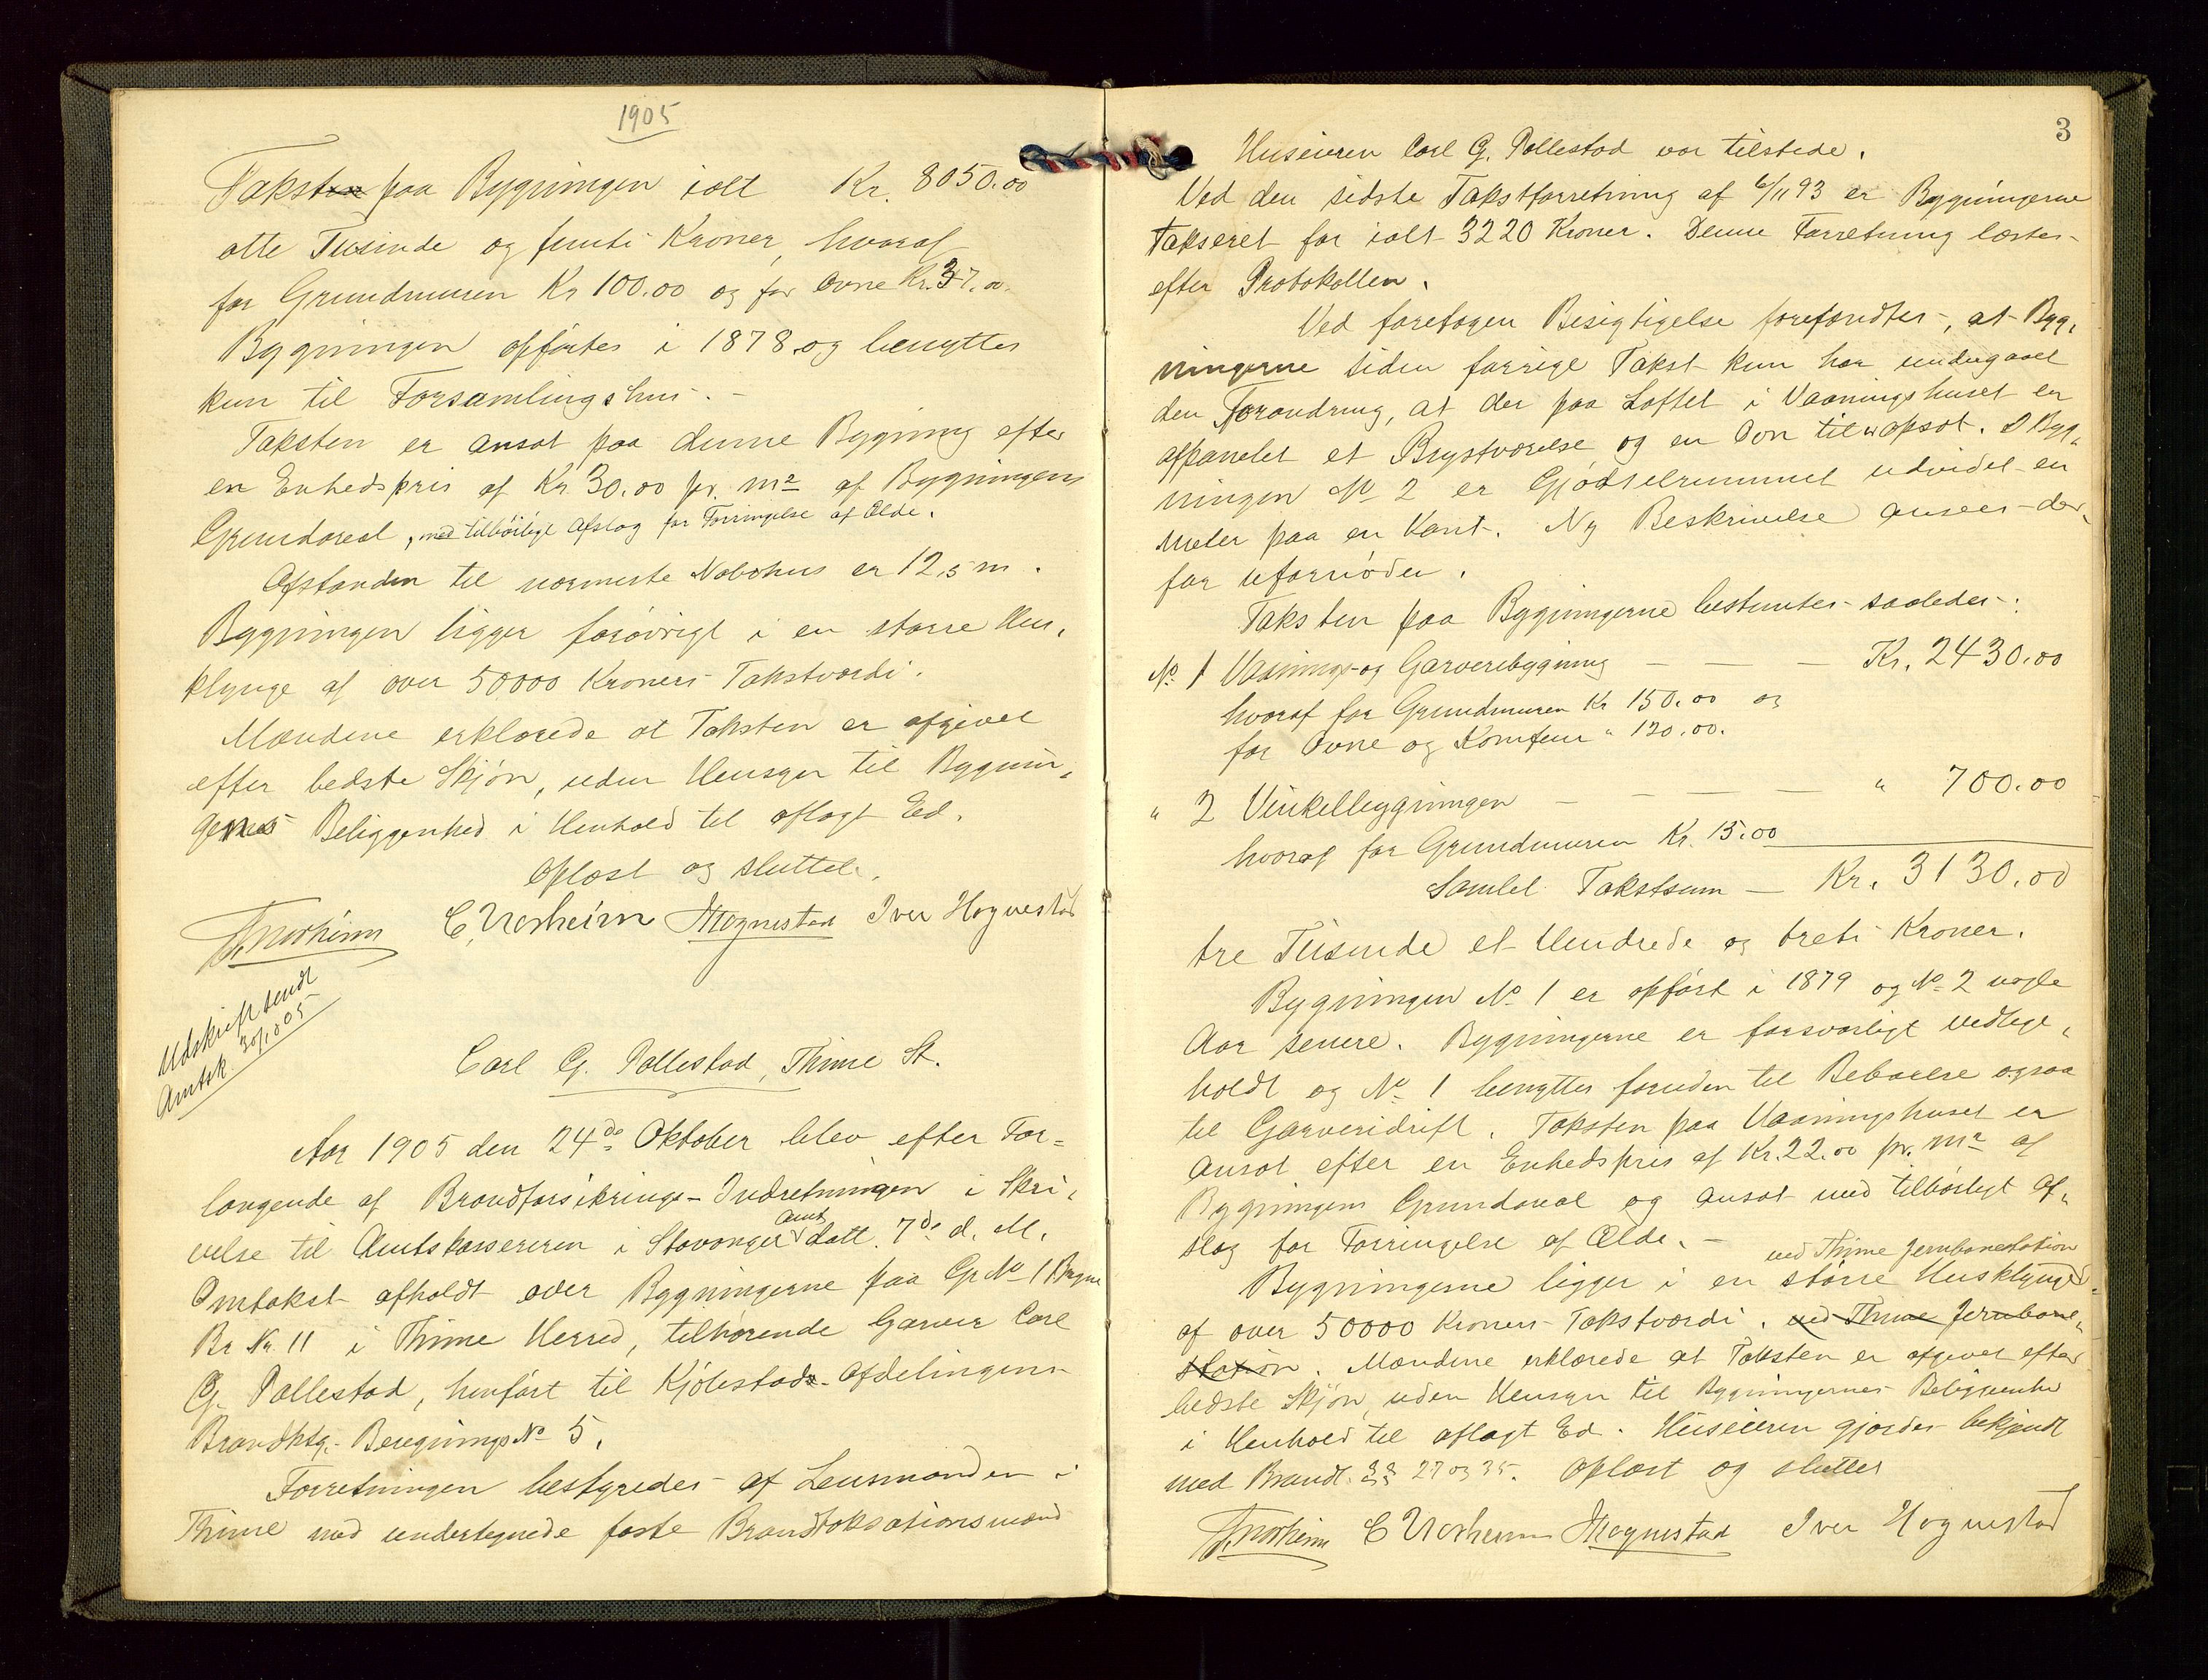 1905
Taksten paa Bygningen ialt Kr. 8050.00
otte Tusinde og femti Kroner, hvoraf
for Grundmuren Kr 100.00 og for Ovne Kr. 37.00.
Bygningen opførtes i 1878 og benyttes
kun til Forsamlingshus. -
Taksten er ansat paa denne Bygning efter
en Enhedspris af Kr 30.00 pr. m2 af Bygningens
Grundareal, med tilbørligt Afslag for Forringelse af Ælde.
Afstanden til nærmeste Nabohus er 12,5 m.
Bygningen ligger forøvrigt i en større Hus-
klynge af over 50000 Kroners Takstværdi.
Mændene erklærede at Taksten er afgivet
efter bedste Skjøn, uden Hensyn til Bygnin-
gernes Beliggenhed i Henhold til aflagt Ed.
Oplæst og sluttet.
C. Norheim Iver Hognestad
Udskrift sendt
Amtsk 30/10 05
Carl G. Pollestad, Thime St.
Aar 1905 den 24de Oktober blev efter For-
langende af Brandforsikrings-Indretningen i Skri-
velse til Amtskassereren i Stavanger Amt datt. 7de d. M.
Omtakst afholdt over Bygningerne paa Gr No 1 Bryne
Br Nr. 11 i Thime Herred, tilhørende Garver Carl
G. Pollestad, henført til Kjøbstads-Afdelingens
Brandktg.- Beregnings No 5.
Forretningen bestyredes af Lensmanden i
Thime med undertegnede faste Brandtakstationsmænd
3
Huseieren Carl G. Pollestad var tilstede.
Ved den sidste Takstforretning af 6/11 93 er Bygningerne
takseret for ialt 3220 Kroner. Denne Forretning læstes
efter Protokollen.
Ved foretagen Besigtigelse forefandtes, at Byg-
ningerne siden forrige Takst kun har undergaaet
den Forandring, at der paa Loftet i Vaaningshuset er
afpanelet et Brystværelse og en Ovn til er opsat. I Byg-
ningen No 2 er Gjødselrummet udvidet en
Meter paa en Kant. Ny Beskrivelse ansees der-
for ufornøden.
Taksten paa Bygningerne bestemtes saaledes:
No 1 Vaanings- og Garveribygning — — — Kr. 2430.00
hvoraf for Grundmuren Kr 150.00 og
for Ovne og Komfur " 120.00.
" 2 Vinkelbygningen — — — — " 700.00
hvoraf for Grundmuren Kr. 15.00
Samlet Takstsum — Kr. 3130.00
tre Tusinde et Hundrede og treti Kroner.
Bygningen No 1 er opført i 1879 og No 2 nogle
Aar senere. Bygningerne er forsvarligt vedlige-
holdt og No 1 benyttes foruden til Beboelse ogsaa
til Garveridrift. Taksten paa Vaaningshuset er
ansat efter en Enhedspris af Kr. 22.00 pr. m2 af
Bygningens Grundareal og ansat med tilbørligt Af-
slag for Forringelse af Ælde. -
ved Thime Jernbanestation
Bygningerne ligger i en større Husklynge
af over 50000 Kroners Takstværdi. ved Thime Jernbane-
station. Mændene erklærede at Taksten er afgivet efter
bedste Skjøn, uden Hensyn til Bygningernes Beliggenhed
i Henhold til aflagt Ed. Huseieren gjordes bekjendt
med Brandl. §§ 27 og 35. Oplæst og sluttet
C Norheim Iver Hognestad